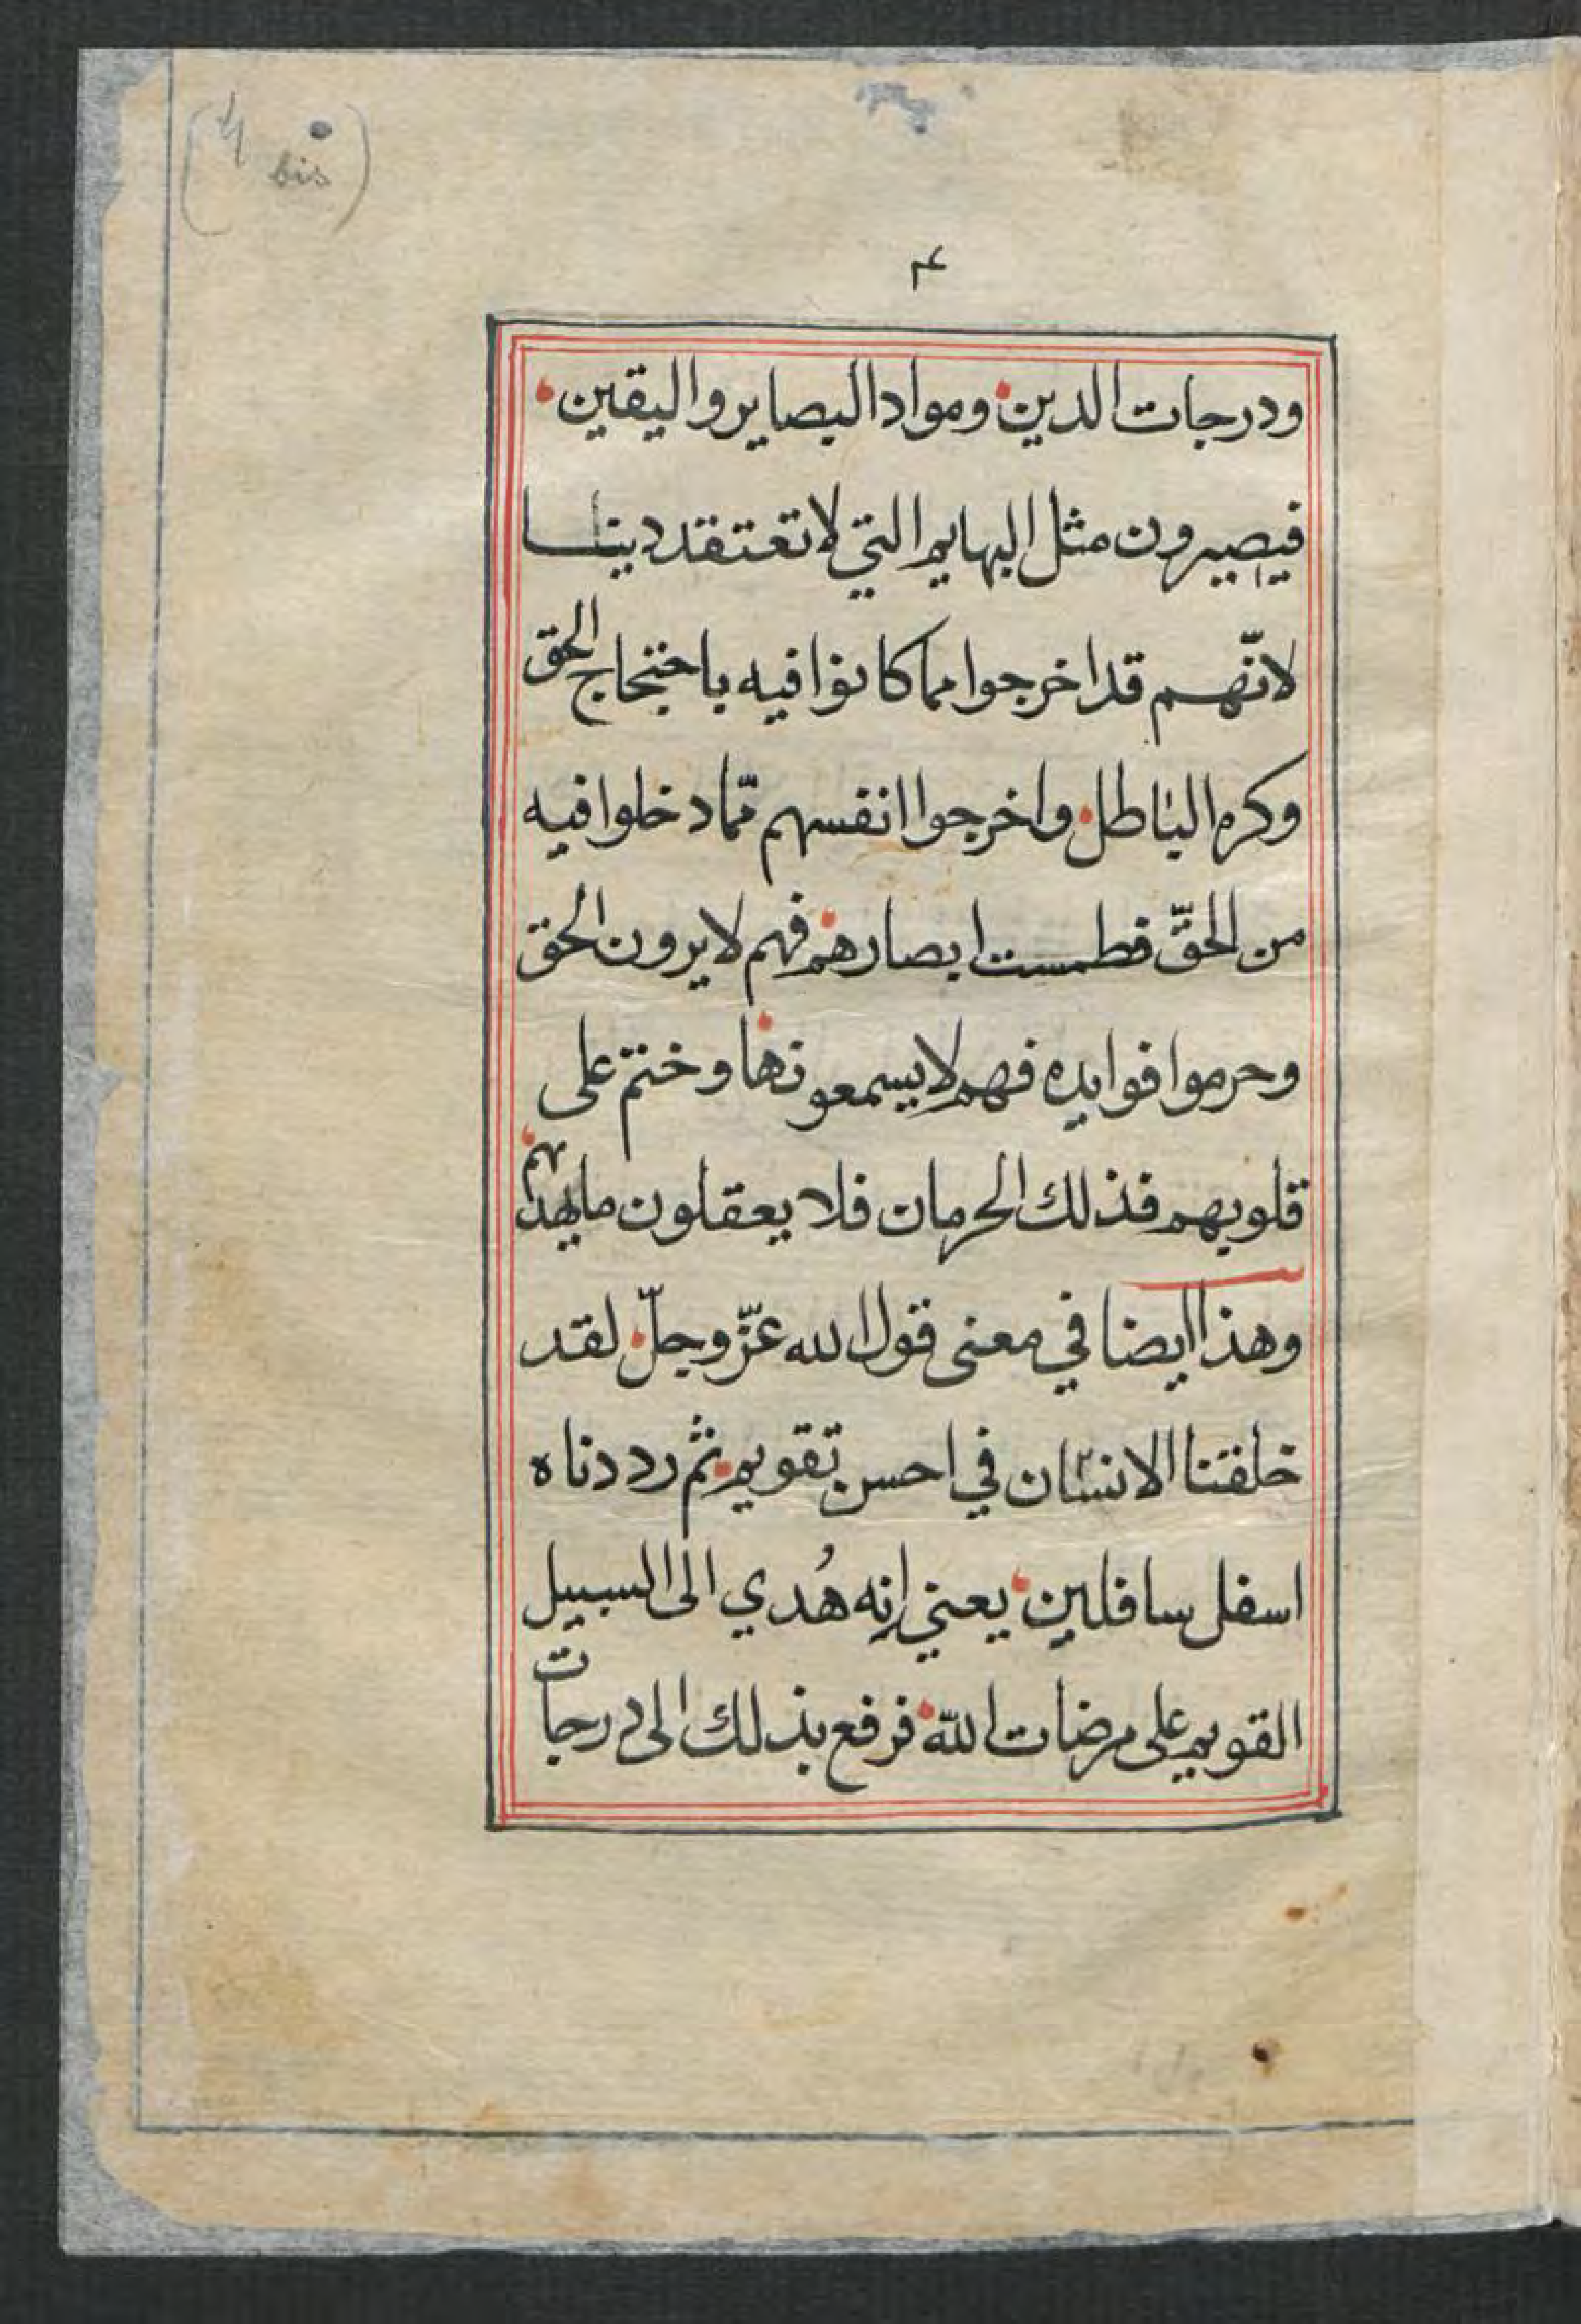 (4 bis)
۴
ودرجات الدين ومواد البصاير واليقين
فيصيرون مثل البهايم التي لا تعتقد دينا
لانّهم قد اخرجوا مما كانوا فيه باحتجاج الحق
وكره الباطل واخرجوا انفسهم ممّا دخلوا فيه
من الحقّ فطمست ابصارهم فهم لا يرون الحق
وحرموا فوايده فهم لا يسمعونها وختم على
قلوبهم فذلك الحرمان فلا يعقلون ما يهديهم
وهذا ايضا في معنى قول الله عزّ وجلّ لقد
خلقنا الانسان في احسن تقويم ثم رددناه
اسفل سافلين يعني انه هُدي الى السبيل
القويم على مرضات الله فرفع بذلك الى درجات